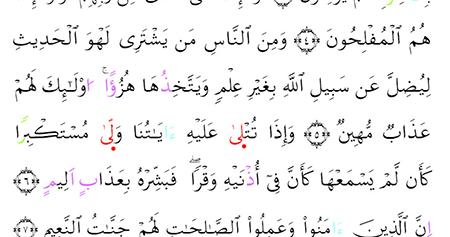 هُمُ ٱلْمُفْلِحُونَ ﴿٤﴾ وَمِنَ ٱلنَّاسِ مَن يَشْتَرِى لَهْوَ ٱلْحَدِيثِ
لِيُضِلَّ عَن سَبِيلِ ٱللَّهِ بِغَيْرِ عِلْمٍ وَيَتَّخِذُهَا هُزُؤًا ۚ ا۟وْلَـٰٓئِكَ لَهُمْ
عَذَابٌ مُّهِينٌ ﴿٥﴾ وَإِذَا تُتْلِىٰ عَلَيْهِ ءَايَـٰتُنَا وَلِّىٰ مُسْتَكْبِرًا
كَأَن لَّمْ يَسْمَعْهَا كَأَنَّ فِىٓ أُذْنَيْهِ وَقْرًا ۖ فَبَشِّرْهُ بِعَذَابٍ اَلِيمٍ ﴿٦﴾
إِنَّ ٱلَّذِينَ ءَامَنُوا۟ وَعَمِلُوا۟ ٱلصَّـٰلِحَـٰتِ لَهُمْ جَنَّـٰتُ ٱلنَّعِيمِ ﴿٧﴾